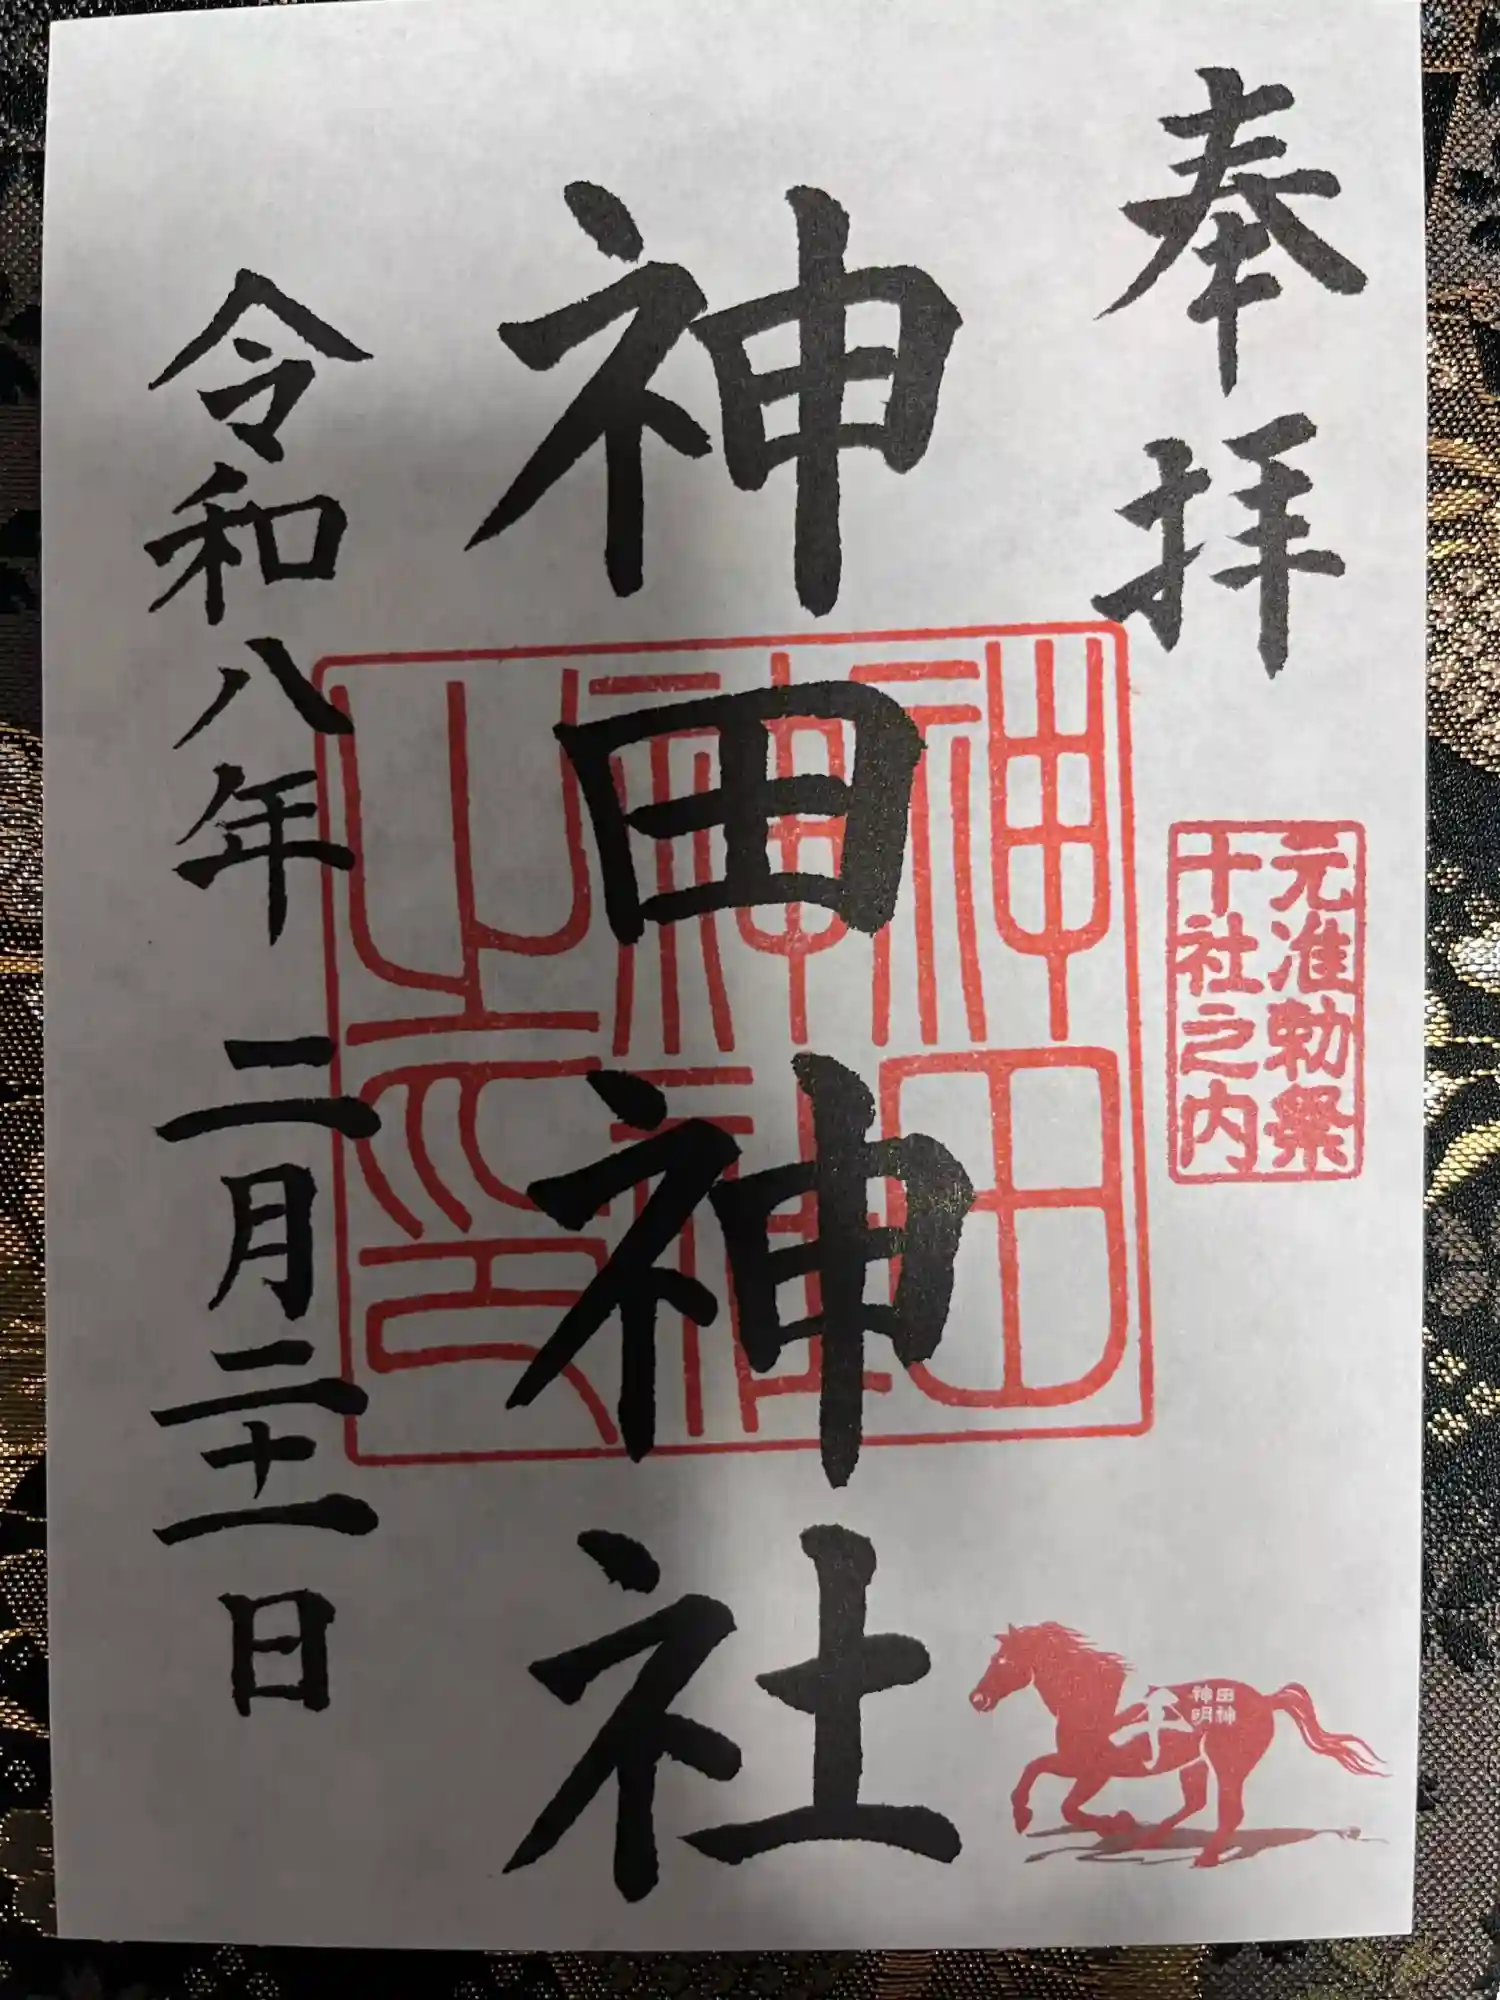 奉拝
元准勅祭
十社之内
神田神社
神田神社之印
令和八年 二月二十一日
神田
明神